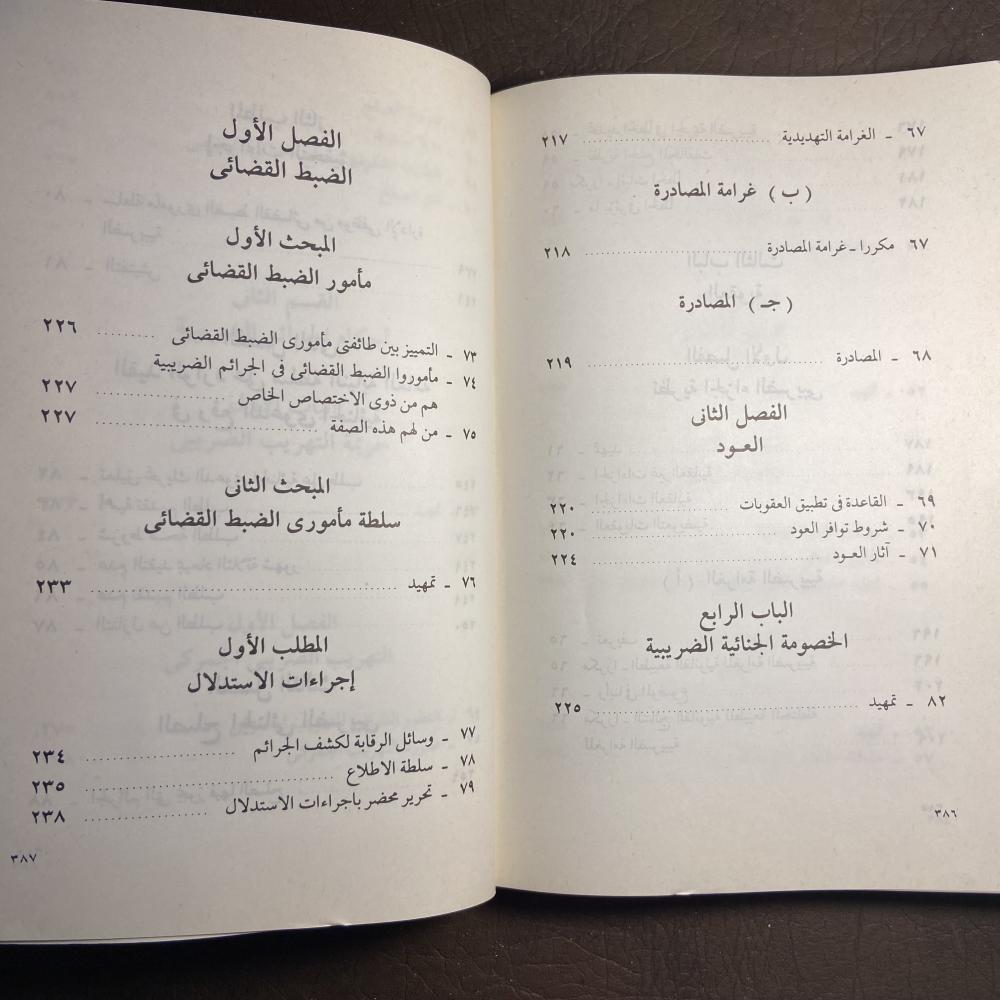 ٦٧ ـ الغرامة التهديدية ........ ٢١٧
( ب ) غرامة المصادرة
٦٧ مكررا ـ غرامة المصادرة ........ ٢١٨
( جـ ) المصادرة
٦٨ ـ المصادرة ........ ٢١٩
الفصل الثانى
العـود
٦٩ ـ القاعدة فى تطبيق العقوبات ........ ٢٢٠
٧٠ ـ شروط توافر العود ........ ٢٢٠
٧١ ـ آثار العـود ........ ٢٢٤
الباب الرابع
الخصومة الجنائية الضريبية
٨٢ ـ تمهيد ........ ٢٢٥
٣٨٦
الفصل الأول
الضبط القضائى
المبحث الأول
مأمور الضبط القضائى
٧٣ ـ التمييز بين طائفتى مأمورى الضبط القضائى ........ ٢٢٦
٧٤ ـ مأموروا الضبط القضائى فى الجرائم الضريبية
هم من ذوى الاختصاص الخاص ........ ٢٢٧
٧٥ ـ من لهم هذه الصفة ........ ٢٢٧
المبحث الثانى
سلطة مأمورى الضبط القضائى
٧٦ ـ تمهيد ........ ٢٣٣
المطلب الأول
إجراءات الاستدلال
٧٧ ـ وسائل الرقابة لكشف الجرائم ........ ٢٣٤
٧٨ ـ سلطة الاطلاع ........ ٢٣٥
٧٩ ـ تحرير محضر باجراءات الاستدلال ........ ٢٣٨
٣٨٧